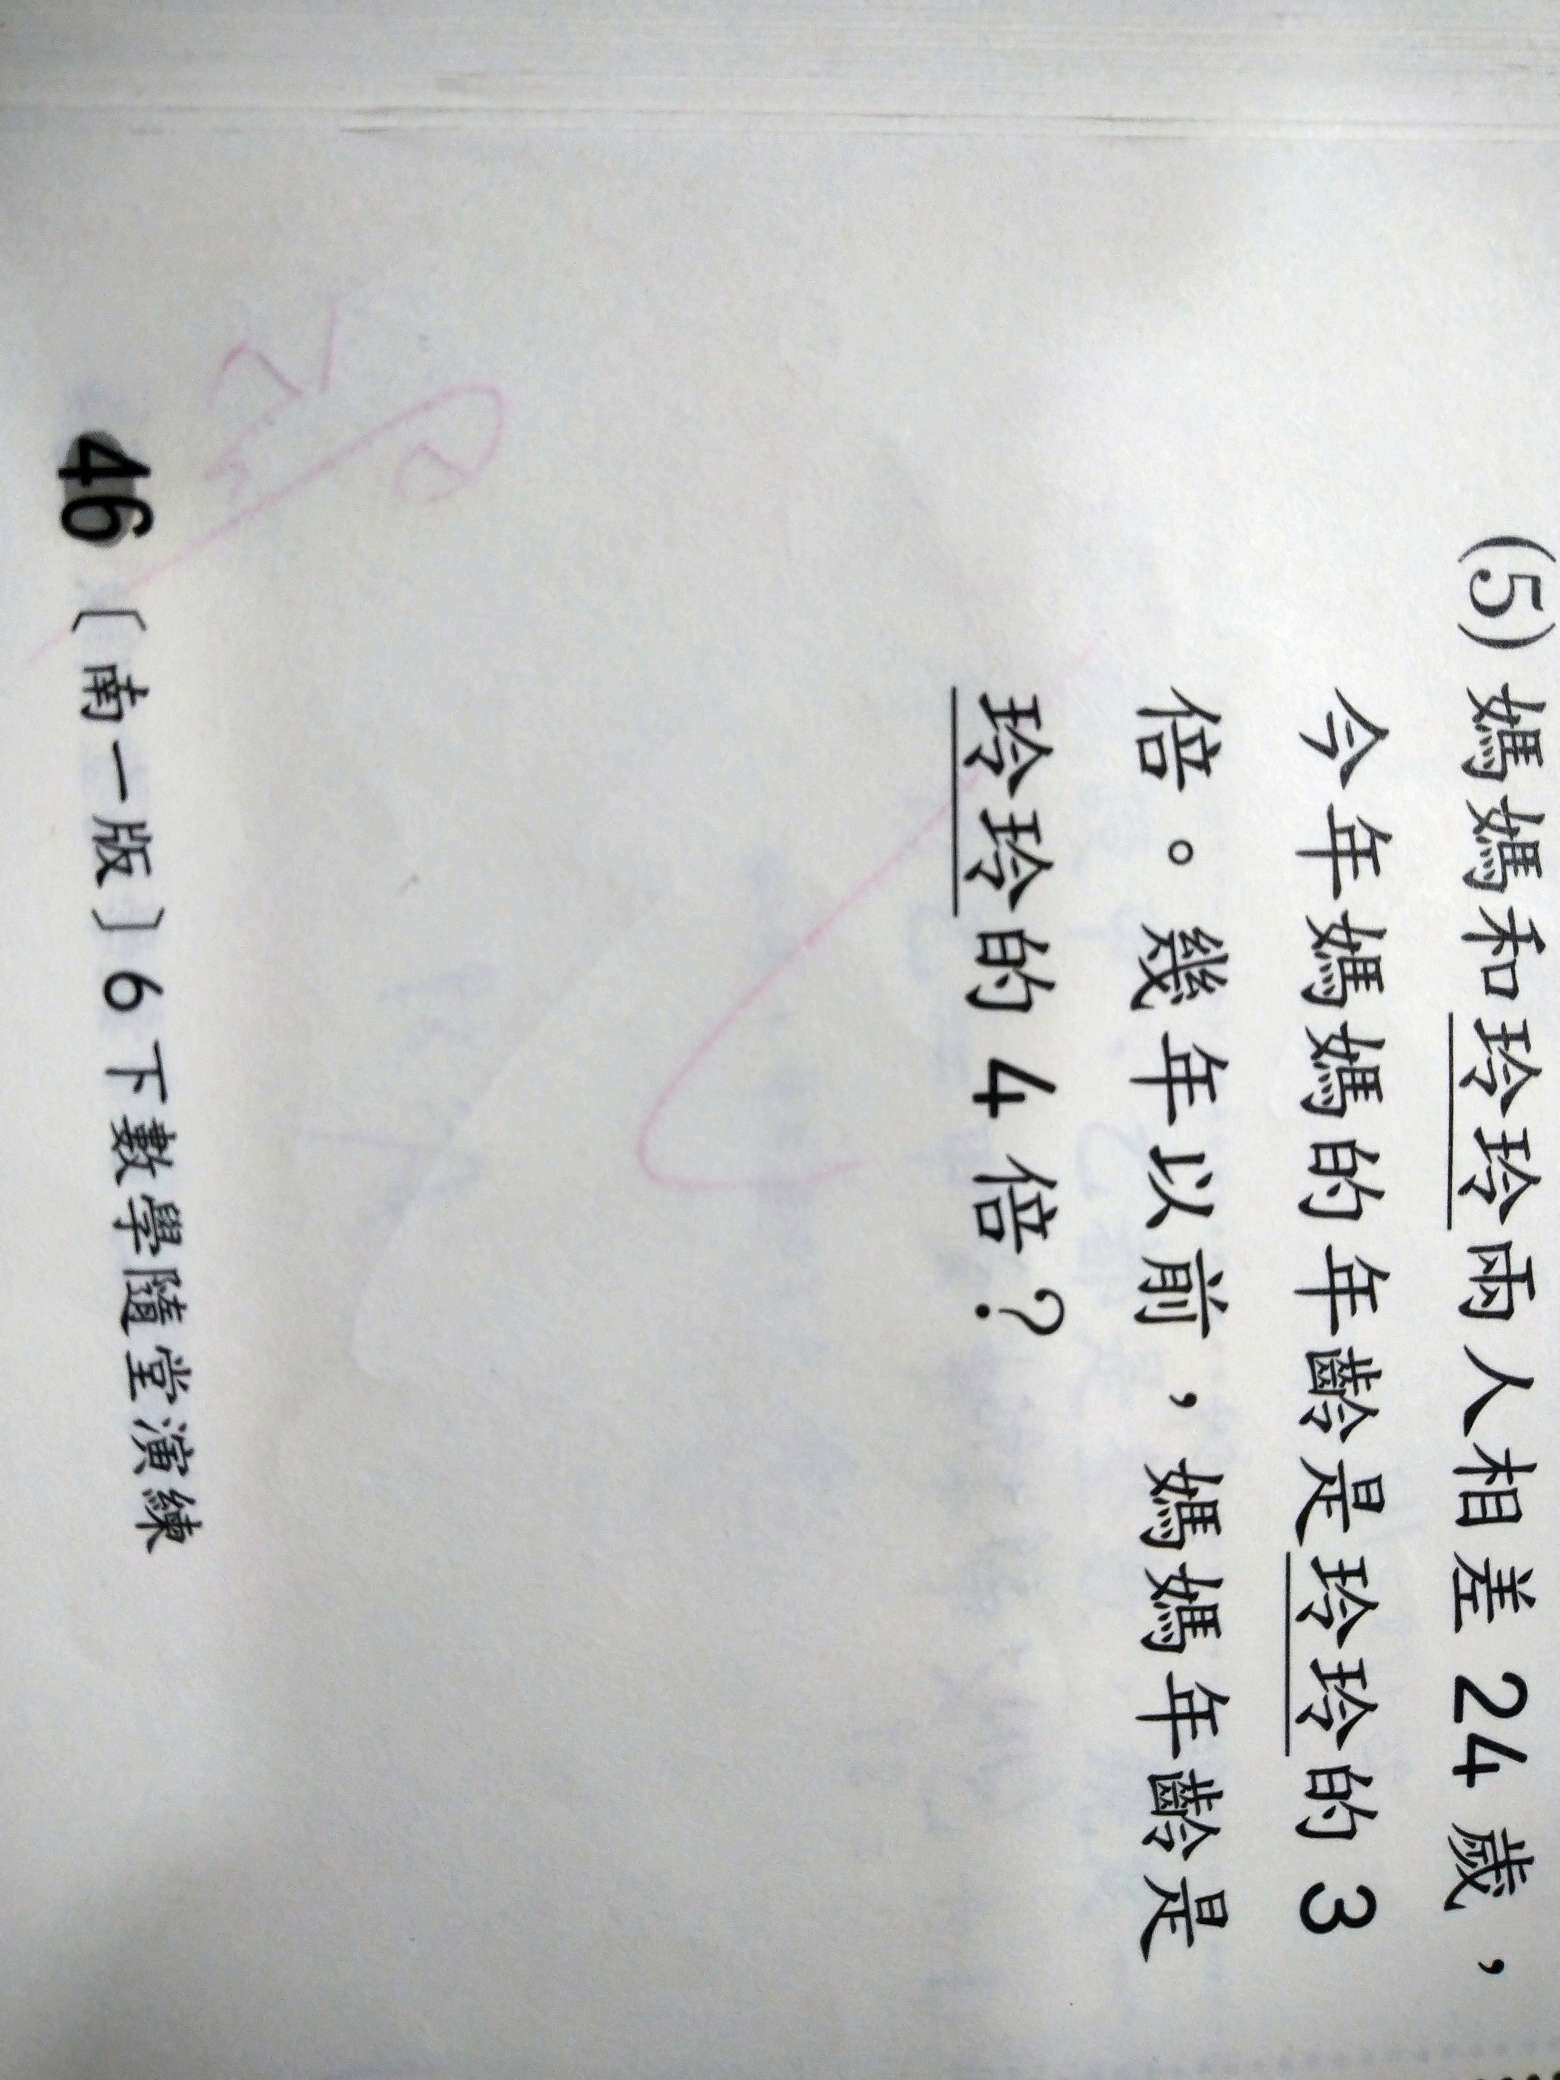 (5) 媽媽和玲玲兩人相差 24 歲，
今年媽媽的年齡是玲玲的 3
倍。幾年以前，媽媽年齡是
玲玲的 4 倍？
46〔南一版〕6 下數學隨堂演練